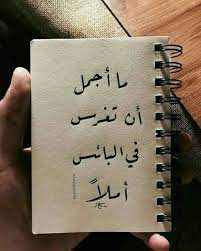 ما أجمل
أن تغرس
في البائس
أملاً